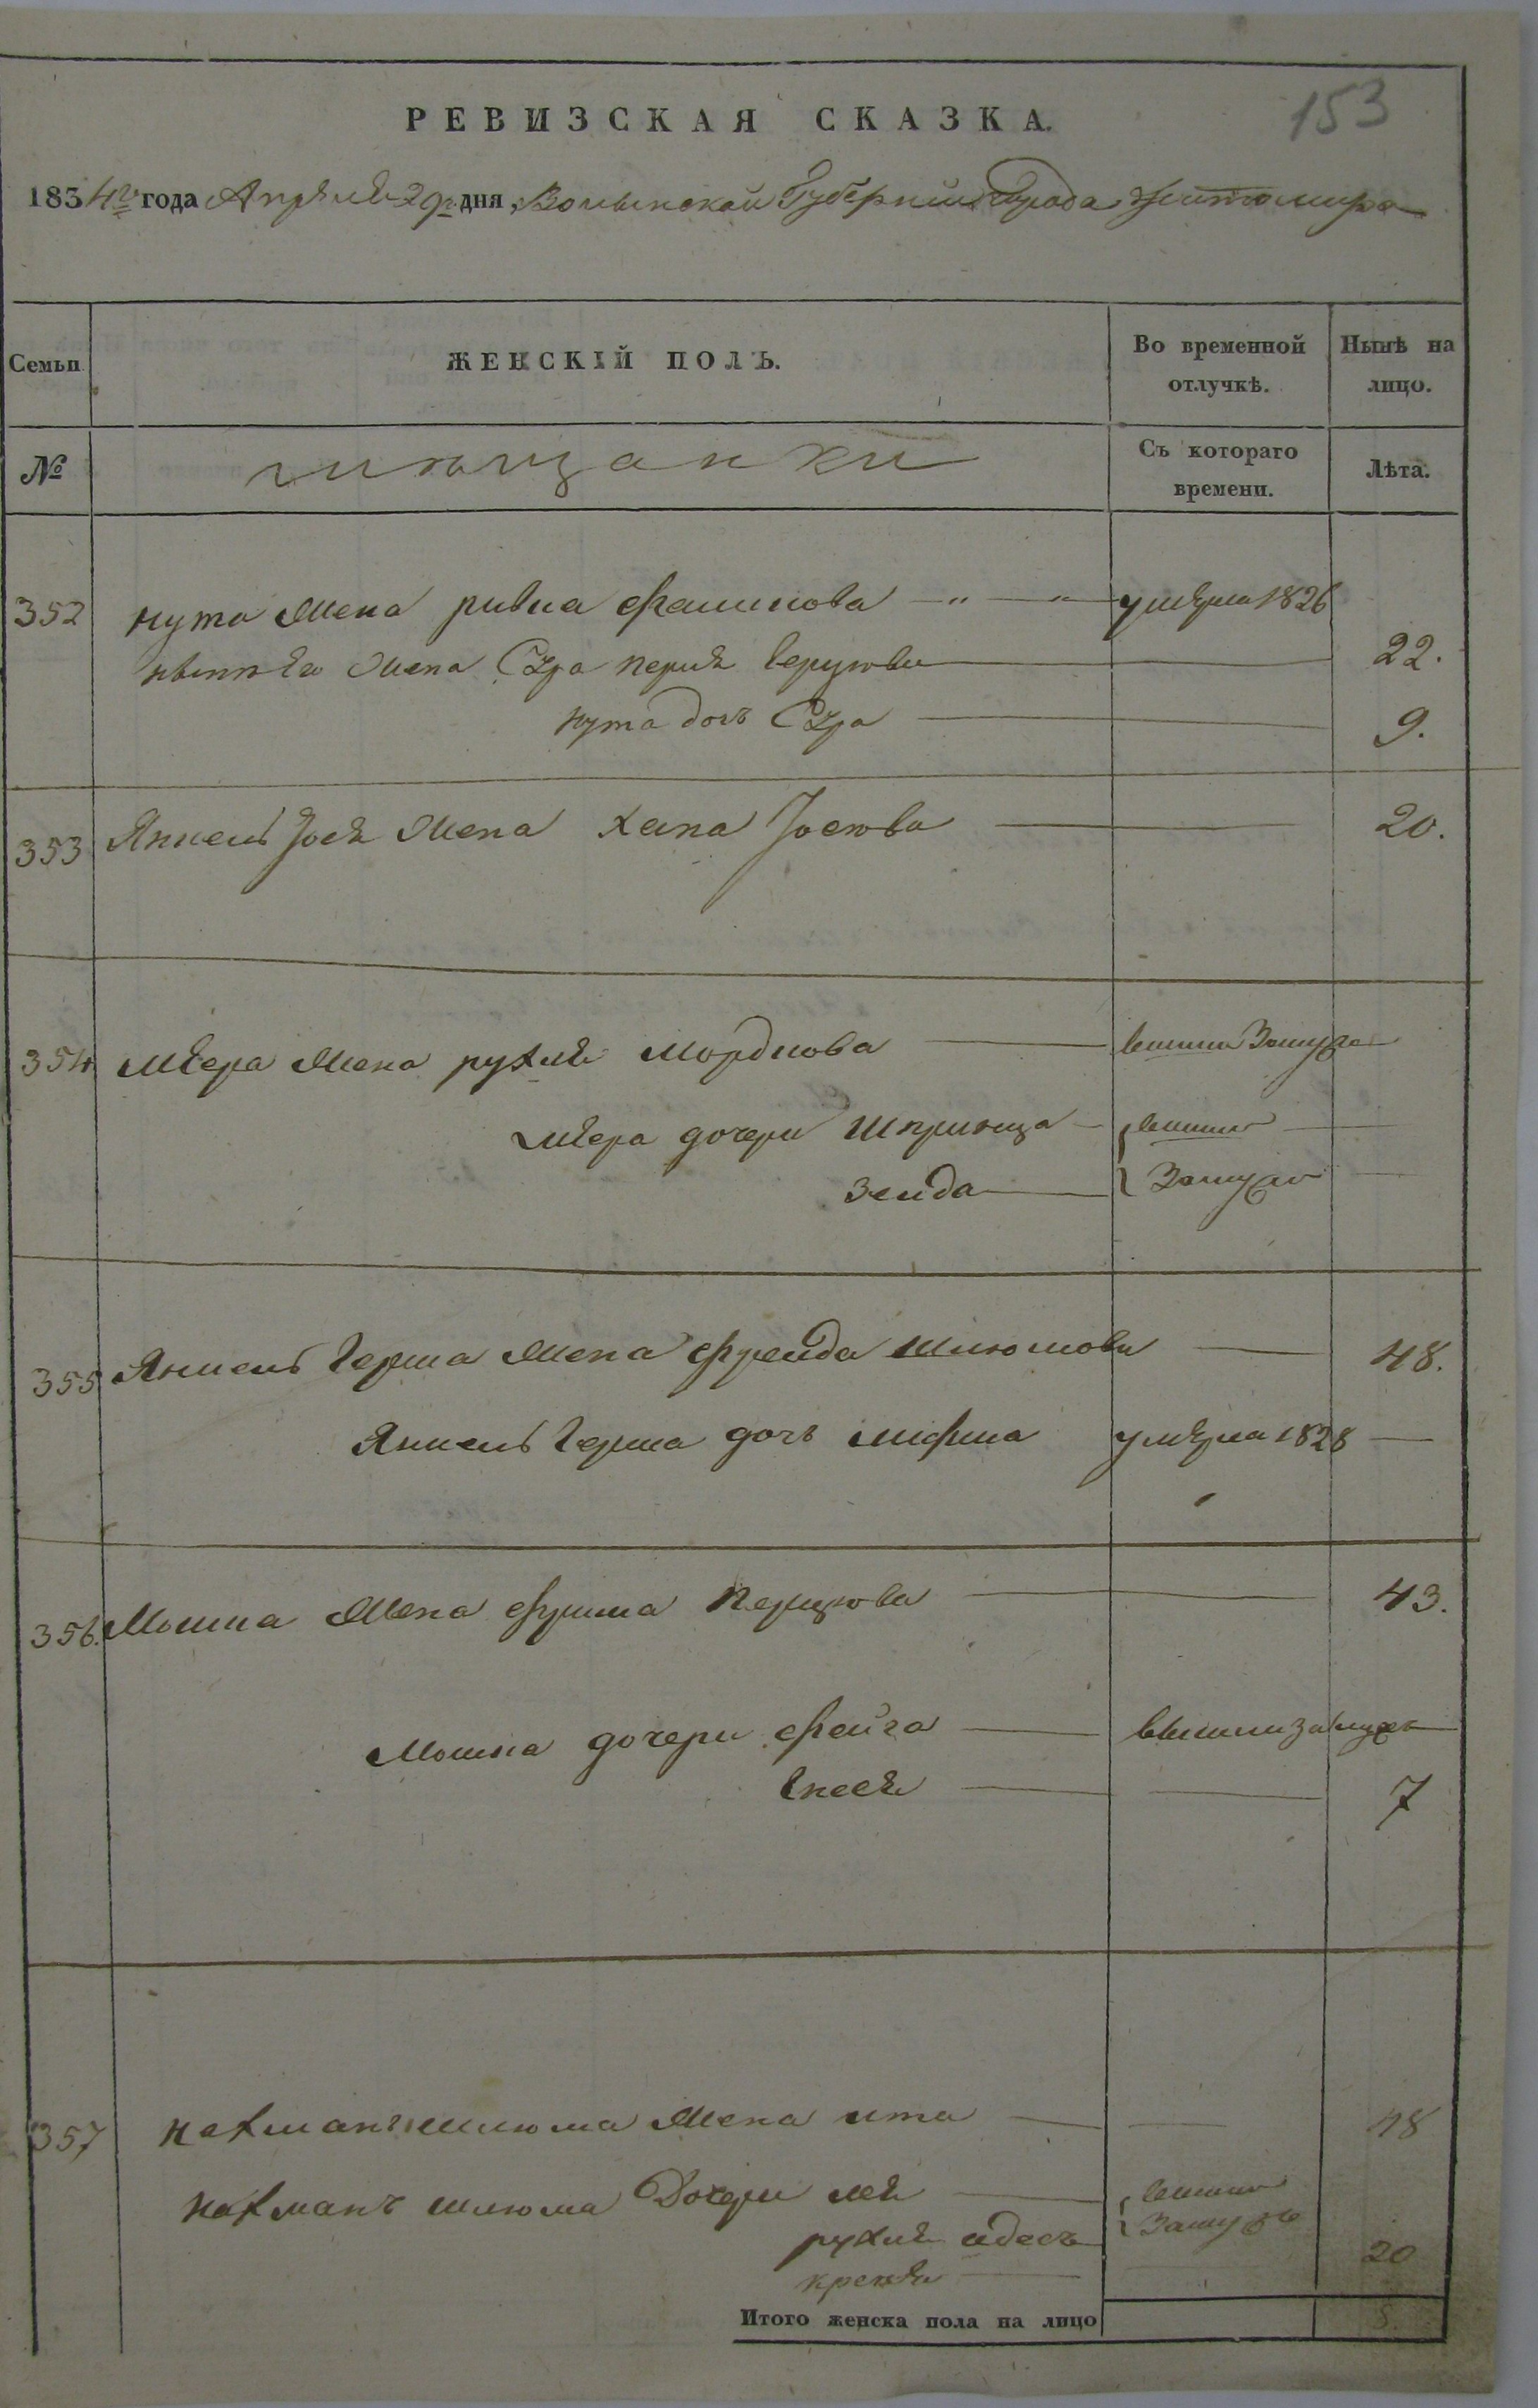 153
РЕВИЗСКАЯ СКАЗКА.
1834го года Апреля 29го дня, Волынской Губернии Города Житомира
Семьи
ЖЕНСКІЙ ПОЛЪ.
Во временной отлучкѣ.
Нынѣ на лицо.
№
мещанки
Съ котораго времени.
Лѣта.
352 нута Жена ривка файшлова —„— —„— умерла 1826
его Жена Сура перля 22.
нута дочь Сура 9.
353 Янкель Іося Жена хана Іосіова 20.
354 меера Жена рухля мордкова вышла Замуж
меера дочери шпринца вышли
Зелда Замужъ
355 Янкель герша Жена фрейда шліомова 48.
Янкель герша дочь умерла 1828
356. Мошка Жена фрима перцова 43.
Мошка дочери фейга вышли замужъ
7
357 нахманъ шліома Жена ита 48
нахманъ шліома Дочери лея вышли
рухля адесъ Замужъ
крейня 20
Итого женска пола на лицо